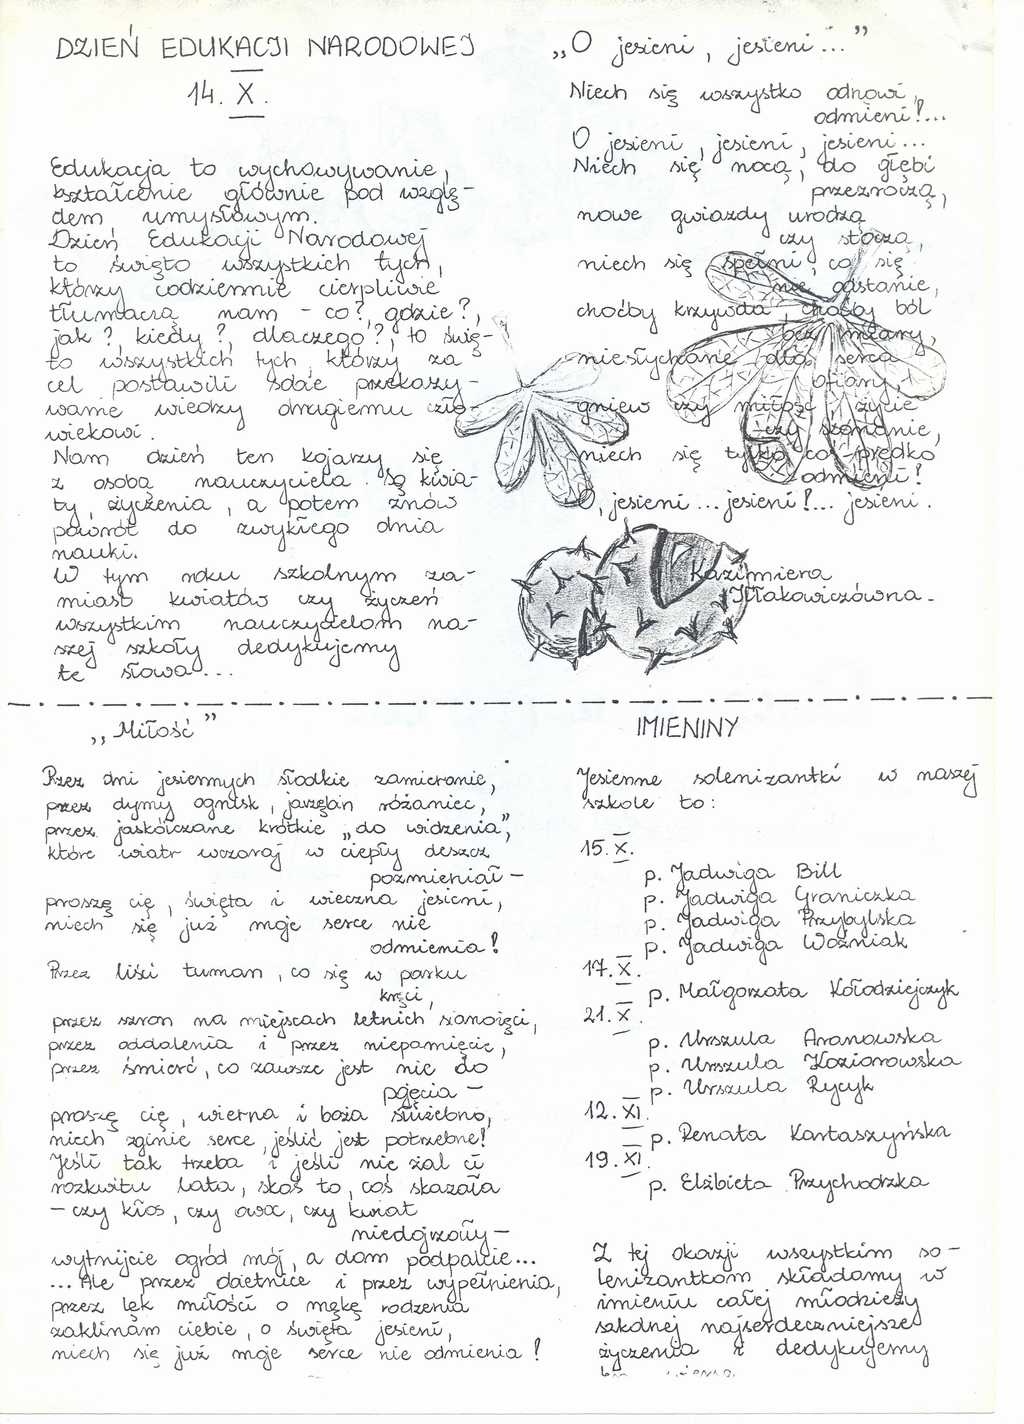 DZIEŃ EDUKACJI NARODOWEJ
14. X.
Edukacja to wychowywanie,
kształcenie głównie pod wzglę-
dem umysłowym.
Dzień Edukacji Narodowej
to święto wszystkich tych,
którzy codziennie cierpliwie
tłumaczą nam - co?, gdzie?,
jak?, kiedy?, dlaczego?, to świę-
to wszystkich tych, którzy za
cel postawili sobie przekazy-
wanie wiedzy drugiemu czło-
wiekowi.
Nam dzień ten kojarzy się
z osobą nauczyciela. Są kwia-
ty, życzenia, a potem znów
powrót do zwykłego dnia
nauki.
W tym roku szkolnym za-
miast kwiatów czy życzeń
wszystkim nauczycielom na-
szej szkoły dedykujemy
te słowa...
„O jesieni, jesieni..."
Niech się wszystko odnowi,
odmieni!...
O jesieni, jesieni, jesieni...
Niech się nocą, do głębi
przezroczą,
nowe gwiazdy urodzą
czy stoczą,
niech się spełni, co się
nie odstanie,
choćby krzywda, choćby ból
bez miary,
niesłychane dla serca
ofiary,
gniew czy miłość, życie
czy skonanie,
niech się tylko coś prędko
odmieni!
O, jesieni... jesieni!... jesieni.
Kazimiera
Iłłakowiczówna.
„Miłość"
Przez dni jesiennych słodkie zamieranie,
przez dymy ognisk, jarzębin różaniec,
przez jaskółczane krótkie „do widzenia",
które wiatr wczoraj w ciepły deszcz
pozmieniał -
proszę cię, święta i wieczna jesieni,
niech się już moje serce nie
odmienia!
Przez liści tuman, co się w parku
kręci,
przez szron na miejscach letnich sianożęci,
przez oddalenia i przez niepamięcie,
przez śmierć, co zawsze jest nie do
pojęcia -
proszę cię, wierna i boża służebno,
niech zginie serce, jeślić jest potrzebne!
Jeśli tak trzeba i jeśli nie żal ci
rozkwitu lata, skoś to, coś skazała
- czy kłos, czy owoc, czy kwiat
niedojrzały -
wytnijcie ogród mój, a dom podpalcie...
... Ale przez dzietnice i przez wypełnienia,
przez lęk miłości o mękę rodzenia
zaklinam ciebie, o święta jesieni,
niech się już moje serce nie odmienia!
IMIENINY
Jesienne solenizantki w naszej
szkole to:
15. X.
p. Jadwiga Bill
p. Jadwiga Graniczka
p. Jadwiga Przybylska
p. Jadwiga Woźniak
17. X.
p. Małgorzata Kołodziejczyk
21. X.
p. Urszula Aranowska
p. Urszula Kozianowska
p. Urszula Rycyk
12. XI.
p. Renata Kartaszyńska
19. XI.
p. Elżbieta Przychodzka
Z tej okazji wszystkim so-
lenizantkom składamy w
imieniu całej młodzieży
szkolnej najserdeczniejsze
życzenia i dedykujemy